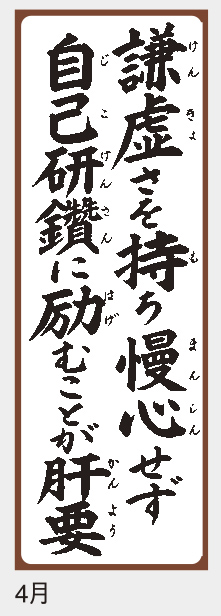 謙虚さを持ち慢心せず
自己研鑽に励むことが肝要
けんきょ
も
まんしん
じこけんさん
はげ
かんよう
4月